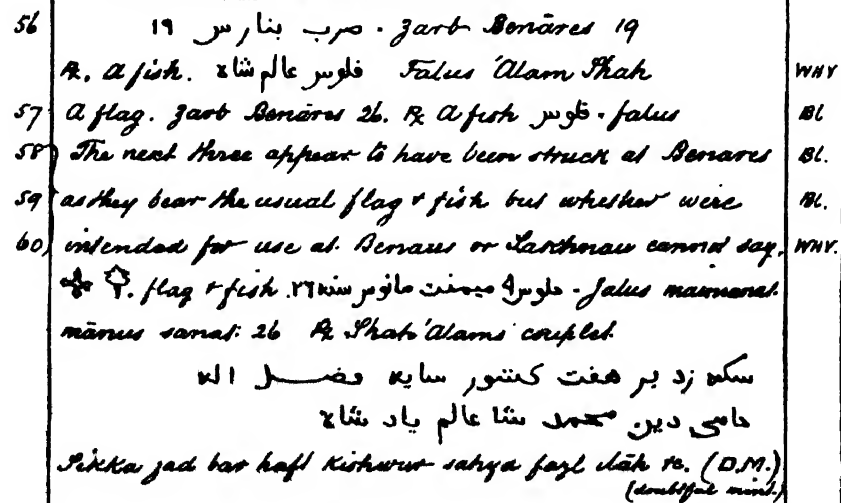 56 ضرب بنارس ١٩ . Zarb Benāres 19
R. A fish. فلوس عالم شاه Falus 'Alam Shah WHV
57 A flag. Zarb Benāres 26. R A fish فلوس . falus Bl
58 The next three appear to have been struck at Benares Bl.
59 as they bear the usual flag & fish but whether were Bl.
60 intended for use at Benares or Lakhnau cannot say. WHV.
flag & fish جلوس ميمنت مانوس سنه ٢٦ . Jalus maimanat
mānus sanat: 26 R Shah 'Alams couplet.
سكه زد بر هفت كشور سايه فضل اله
حامى دين محمد شا عالم باد شاه
Sikka zad bar haft Kishwur sahya fazl ilāh &c. (D.M.)
(doubtful mint.)